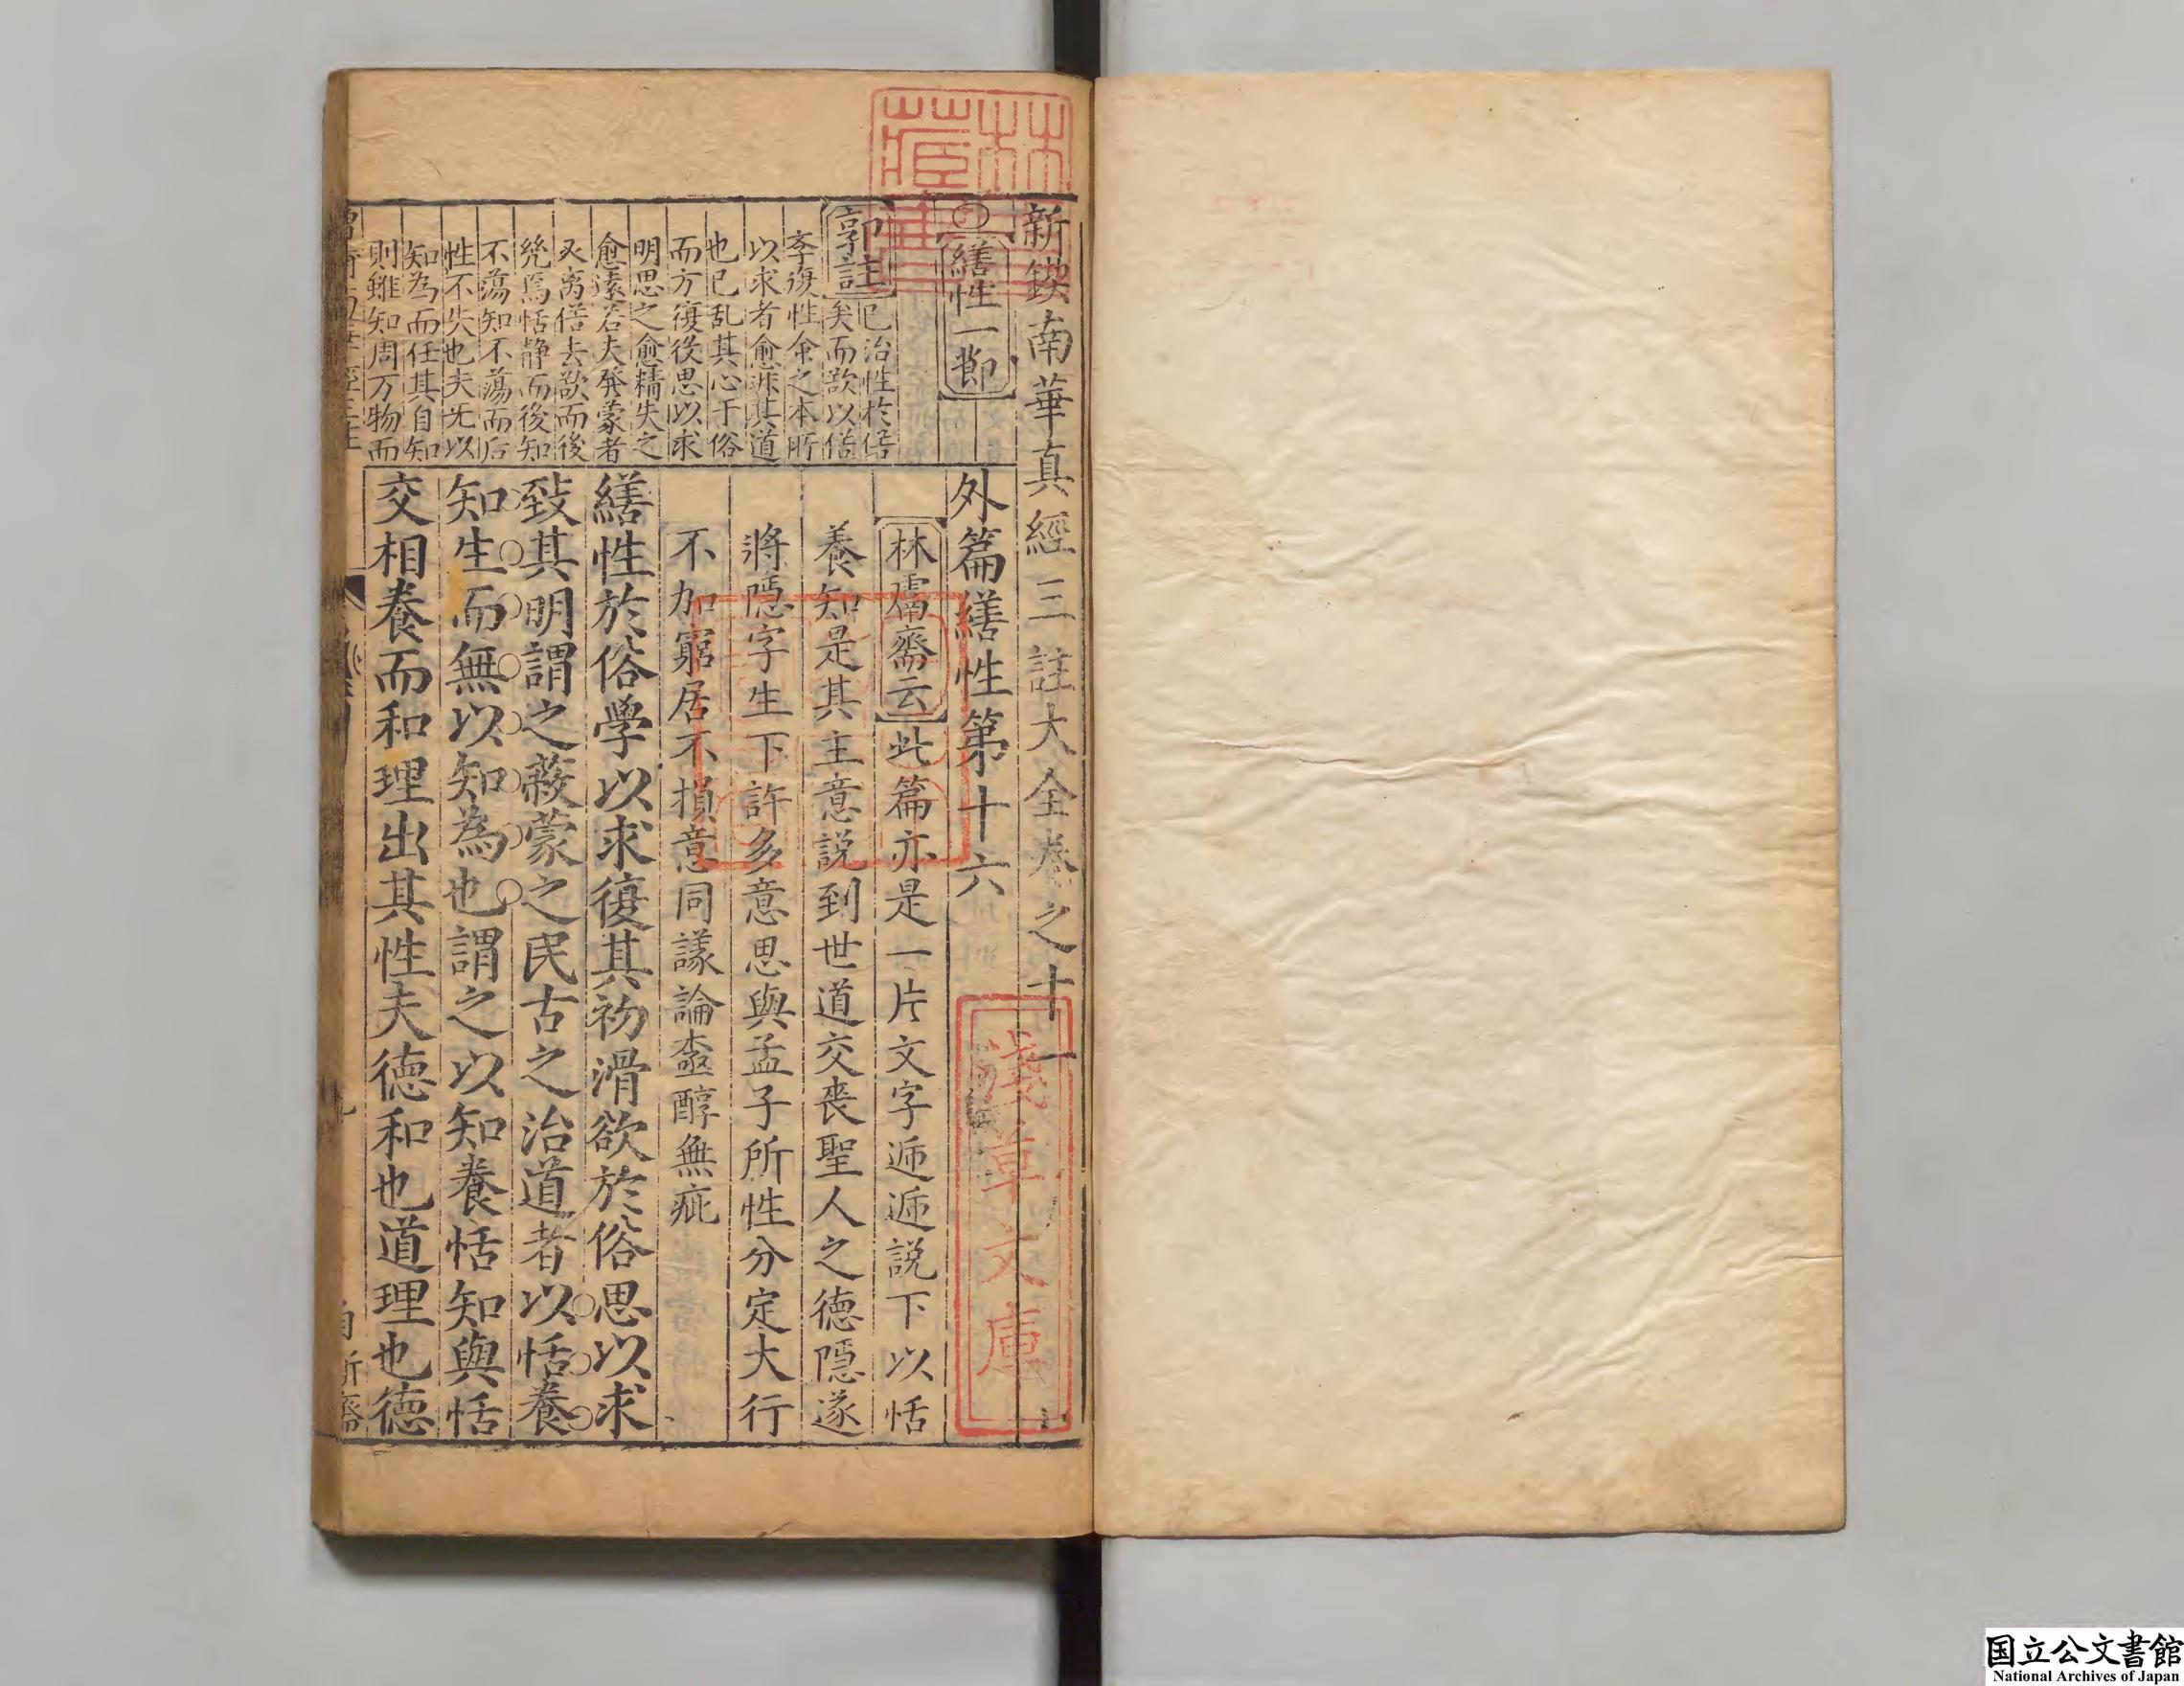 新鍥南華真經三註大全卷之十一
○繕性一節
外篇繕性第十六
郭註
已治性於俗
矣而欲以俗
李復性命之本所
以求者愈非其道
也已乱其心于俗
而方復役思以求
明思之愈精失之
愈遠若夫發蒙者
必离俗去欲而後
㡬焉恬静而後知
不蕩知不蕩而后
性不失也夫无以
知為而任其自知
則雖知周万物而
林鬳齋云此篇亦是一片文字遞遞説下以恬
養知是其主意説到世道交喪聖人之德隱遂
將隱字生下許多意思與孟子所性分定大行
不加窮居不損意同議論盍醇無疵
繕性於俗學以求復其初滑欲於俗思以求
致其明謂之蔽蒙之民古之治道者以恬養
知生而無以知為也謂之以知養恬知與恬
交相養而和理出其性夫德和也道理也德
淺草文庫
国立公文書館
National Archives of Japan